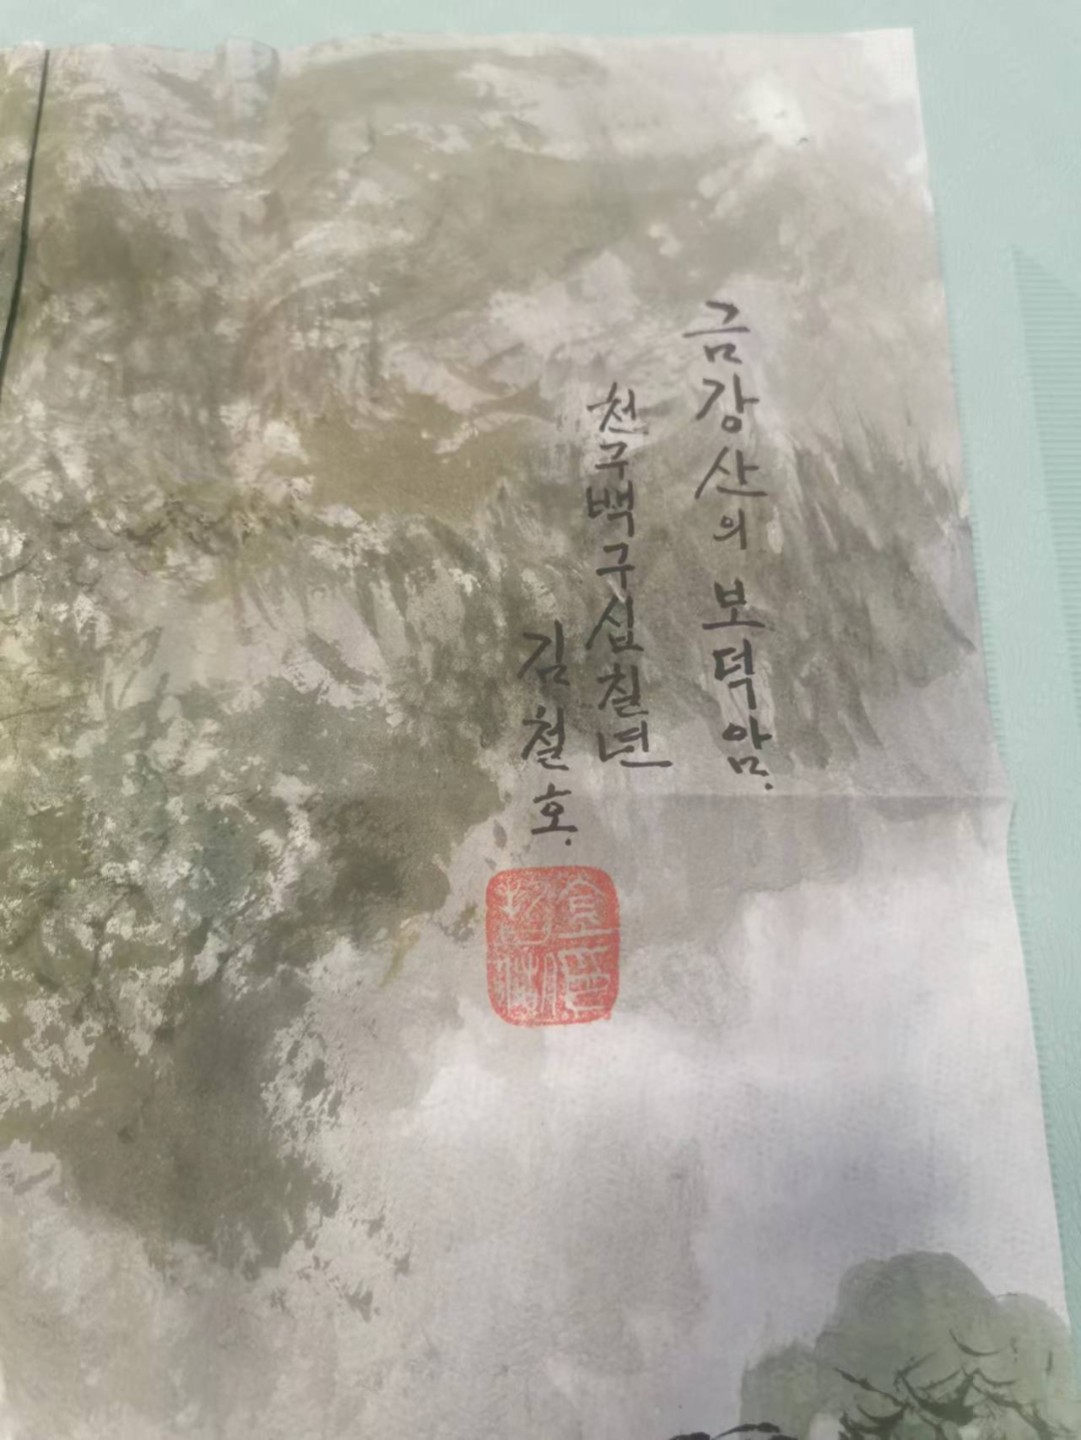 금강산의 보덕암.
천구백구십칠년
김철호.